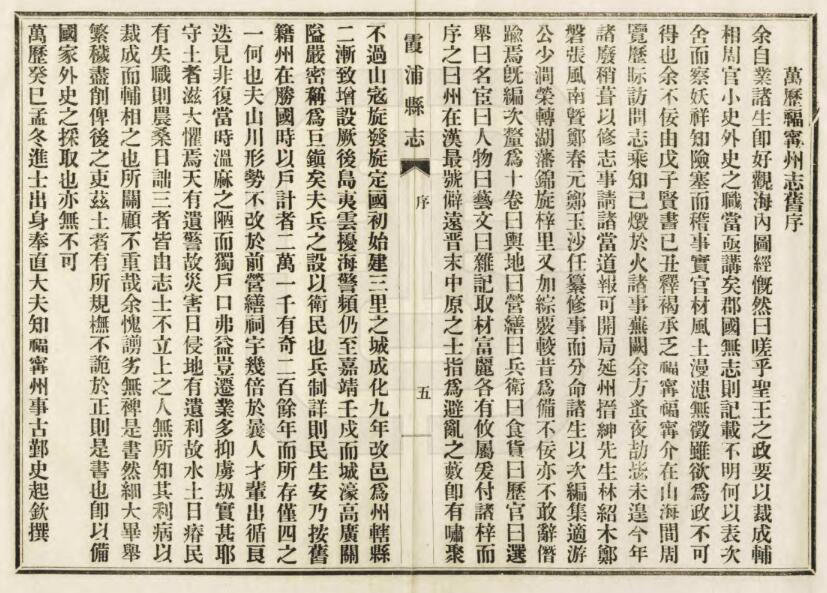 萬歷福寧州志舊序
余自業諸生卽好觀海內圖經慨然曰嗟乎聖王之政要以裁成輔
相周官小史外史之職當亟講矣郡國無志則記載不明何以表次
舍而察妖祥知險塞而稽事實官材風土漫漶無徵雖欲爲政不可
得也余不佞由戊子賢書己丑釋褐承乏福寧福寧介在山海間周
覽歷眎訪問志乘知已燬於火諸事蕪闕余方蚤夜劼毖未遑今年
諸廢稍葺以修志事請諸當道報可開局延州搢紳先生林紹木鄭
磐張風南曁鄭春元鄭玉沙任纂修事而分命諸生以次編集適游
公少澗榮轉湖藩錦旋梓里又加綜覈較昔爲備不佞亦不敢辭僭
踰焉旣編次釐爲十卷曰輿地曰營繕曰兵衛曰食貨曰歷官曰選
舉曰名宦曰人物曰藝文曰雜記取材富麗各有攸屬爰付諸梓而
序之曰州在漢最號僻遠晋末中原之士指爲避亂之藪卽有嘯聚
霞浦縣志
序
五
不過山寇旋發旋定國初始建三里之城成化九年改邑爲州轄縣
二漸致增設厥後島夷雲擾海警頻仍至嘉靖壬戌而城濠高廣關
隘嚴密稱爲巨鎭矣夫兵之設以衛民也兵制詳則民生安乃按舊
籍州在勝國時以戶計者二萬一千有奇二百餘年而所存僅四之
一何也夫山川形勢不改於前營繕祠宇幾倍於曩人才輩出循良
迭見非復當時溫麻之陋而獨戶口弗益豈遷業多抑虜刼實甚耶
守土者滋大懼焉天有遺警故災害日侵地有遺利故水土日瘠民
有失職則農桑日詘三者皆由志士不立上之人無所知其利病以
裁成而輔相之也所關顧不重哉余愧譾劣無裨是書然細大畢舉
繁穢盡削俾後之吏玆土者有所規橅不詭於正則是書也卽以備
國家外史之採取也亦無不可
萬歷癸巳孟冬進士出身奉直大夫知福寧州事古鄞史起欽撰